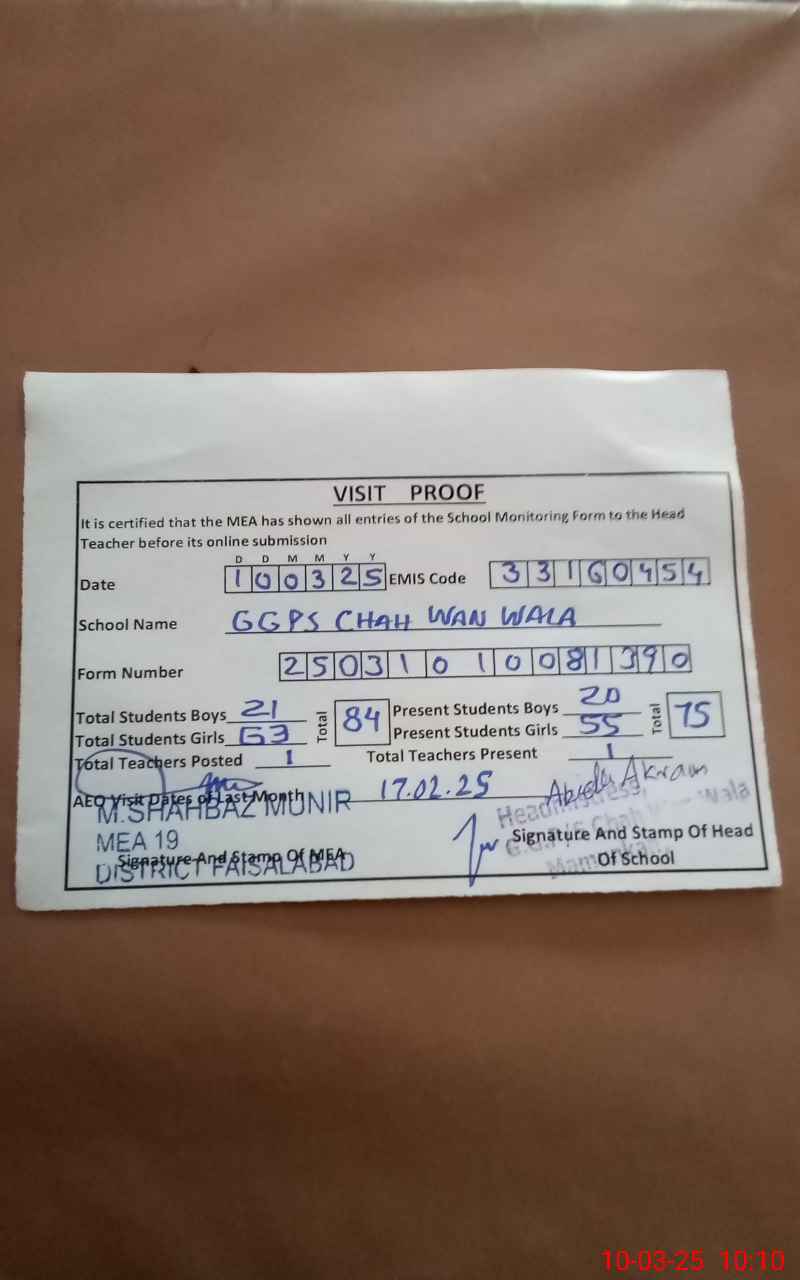 VISIT PROOF
It is certified that the MEA has shown all entries of the School Monitoring Form to the Head
Teacher before its online submission
D D M M Y Y
Date 100325 EMIS Code 33160454
School Name GGPS CHAH WAN WALA
Form Number 25031010081390
Total Students Boys 21 Total 84 Present Students Boys 20 Total 75
Total Students Girls 63 Present Students Girls 55
Total Teachers Posted 1 Total Teachers Present 1
AEO Visit Dates of Last Month 17.02.25 Abida Akram
M.SHAHBAZ MUNIR Headmistress
MEA 19 Signature And Stamp Of Head
Signature And Stamp Of MEA Of School
DISTRICT FAISALABAD
10-03-25 10:10